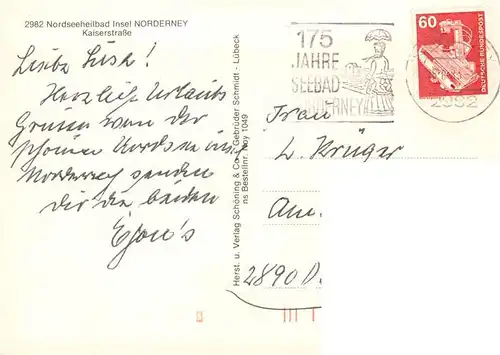 2982 Nordseeheilbad Insel NORDERNEY
Kaiserstraße
Liebe
Herzliche Urlaubs
Grüsse von der
schönen Nordsee in
Norderney senden
Dir die beiden
Herst. u. Verlag Schöning & Co + Gebrüder Schmidt - Lübeck
ns Bestellnr. Noy 1049
175
JAHRE
SEEBAD
NORDERNEY
60
DEUTSCHE BUNDESPOST
2982
Frau
L. Krüger
Am
2890